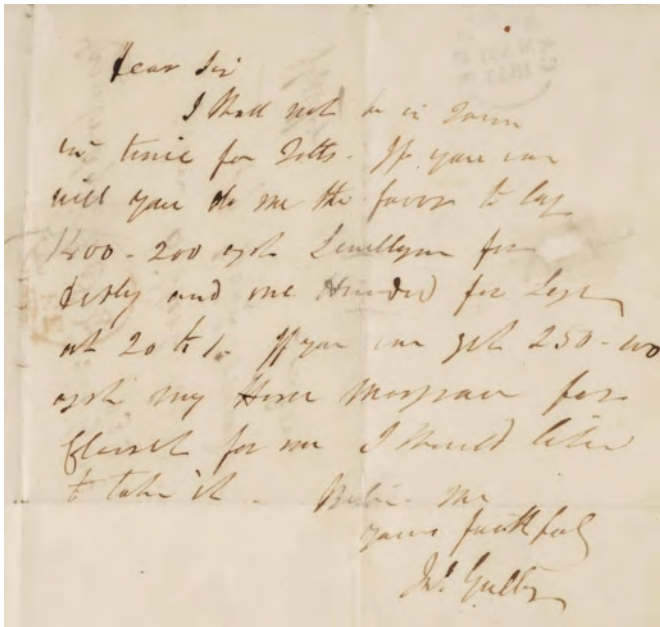 Dear Sir
I shall not be in Town
in time for Tatts. If you can
will you do me the favor to lay
1400-200 agst Lanellyon for
Derby and one Hundred for Leger
at 20 to 1. If you can get 250-100
agst my Horse Margrave for
for me I should like
to take it. Believe me
yours faithfully
Jno. Gully